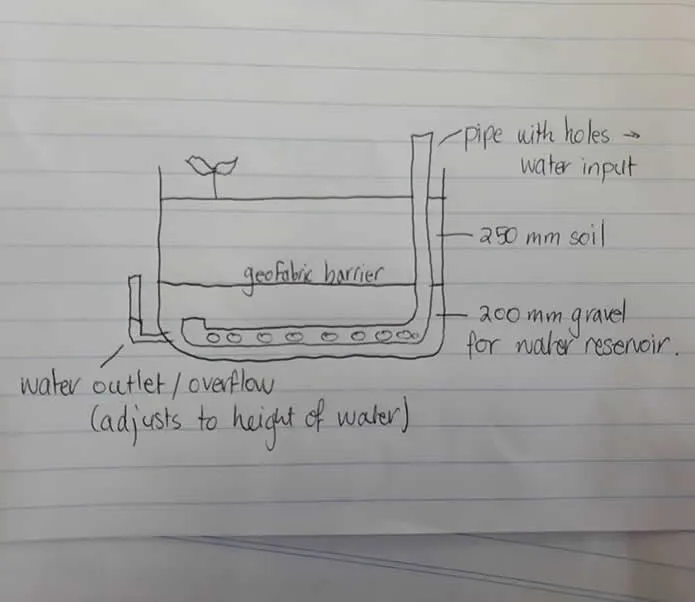 pipe with holes →
water input
250 mm soil
geofabric barrier
200 mm gravel
for water reservoir.
water outlet/overflow
(adjusts to height of water)